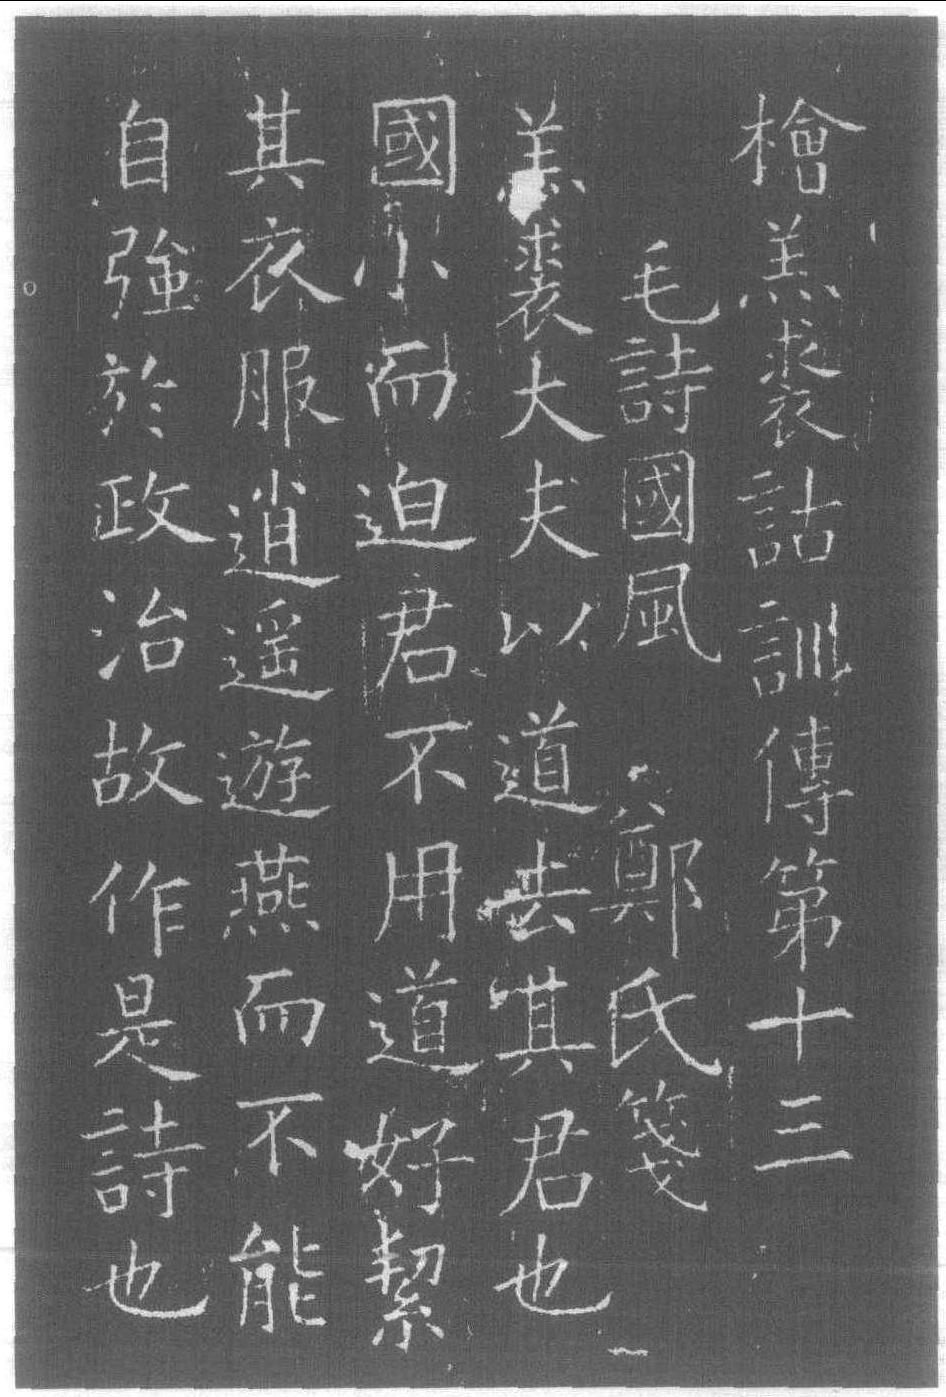 檜羔裘詁訓傳第十三
毛詩國風 鄭氏箋
羔裘大夫以道去其君也
國小而迫君不用道好絜
其衣服逍遥遊燕而不能
自強於政治故作是詩也